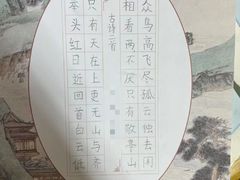 众鸟高飞尽孤云独去闲
相看两不厌只有敬亭山
古诗二首
只有天在上更无山与齐
举头红日近回首白云低